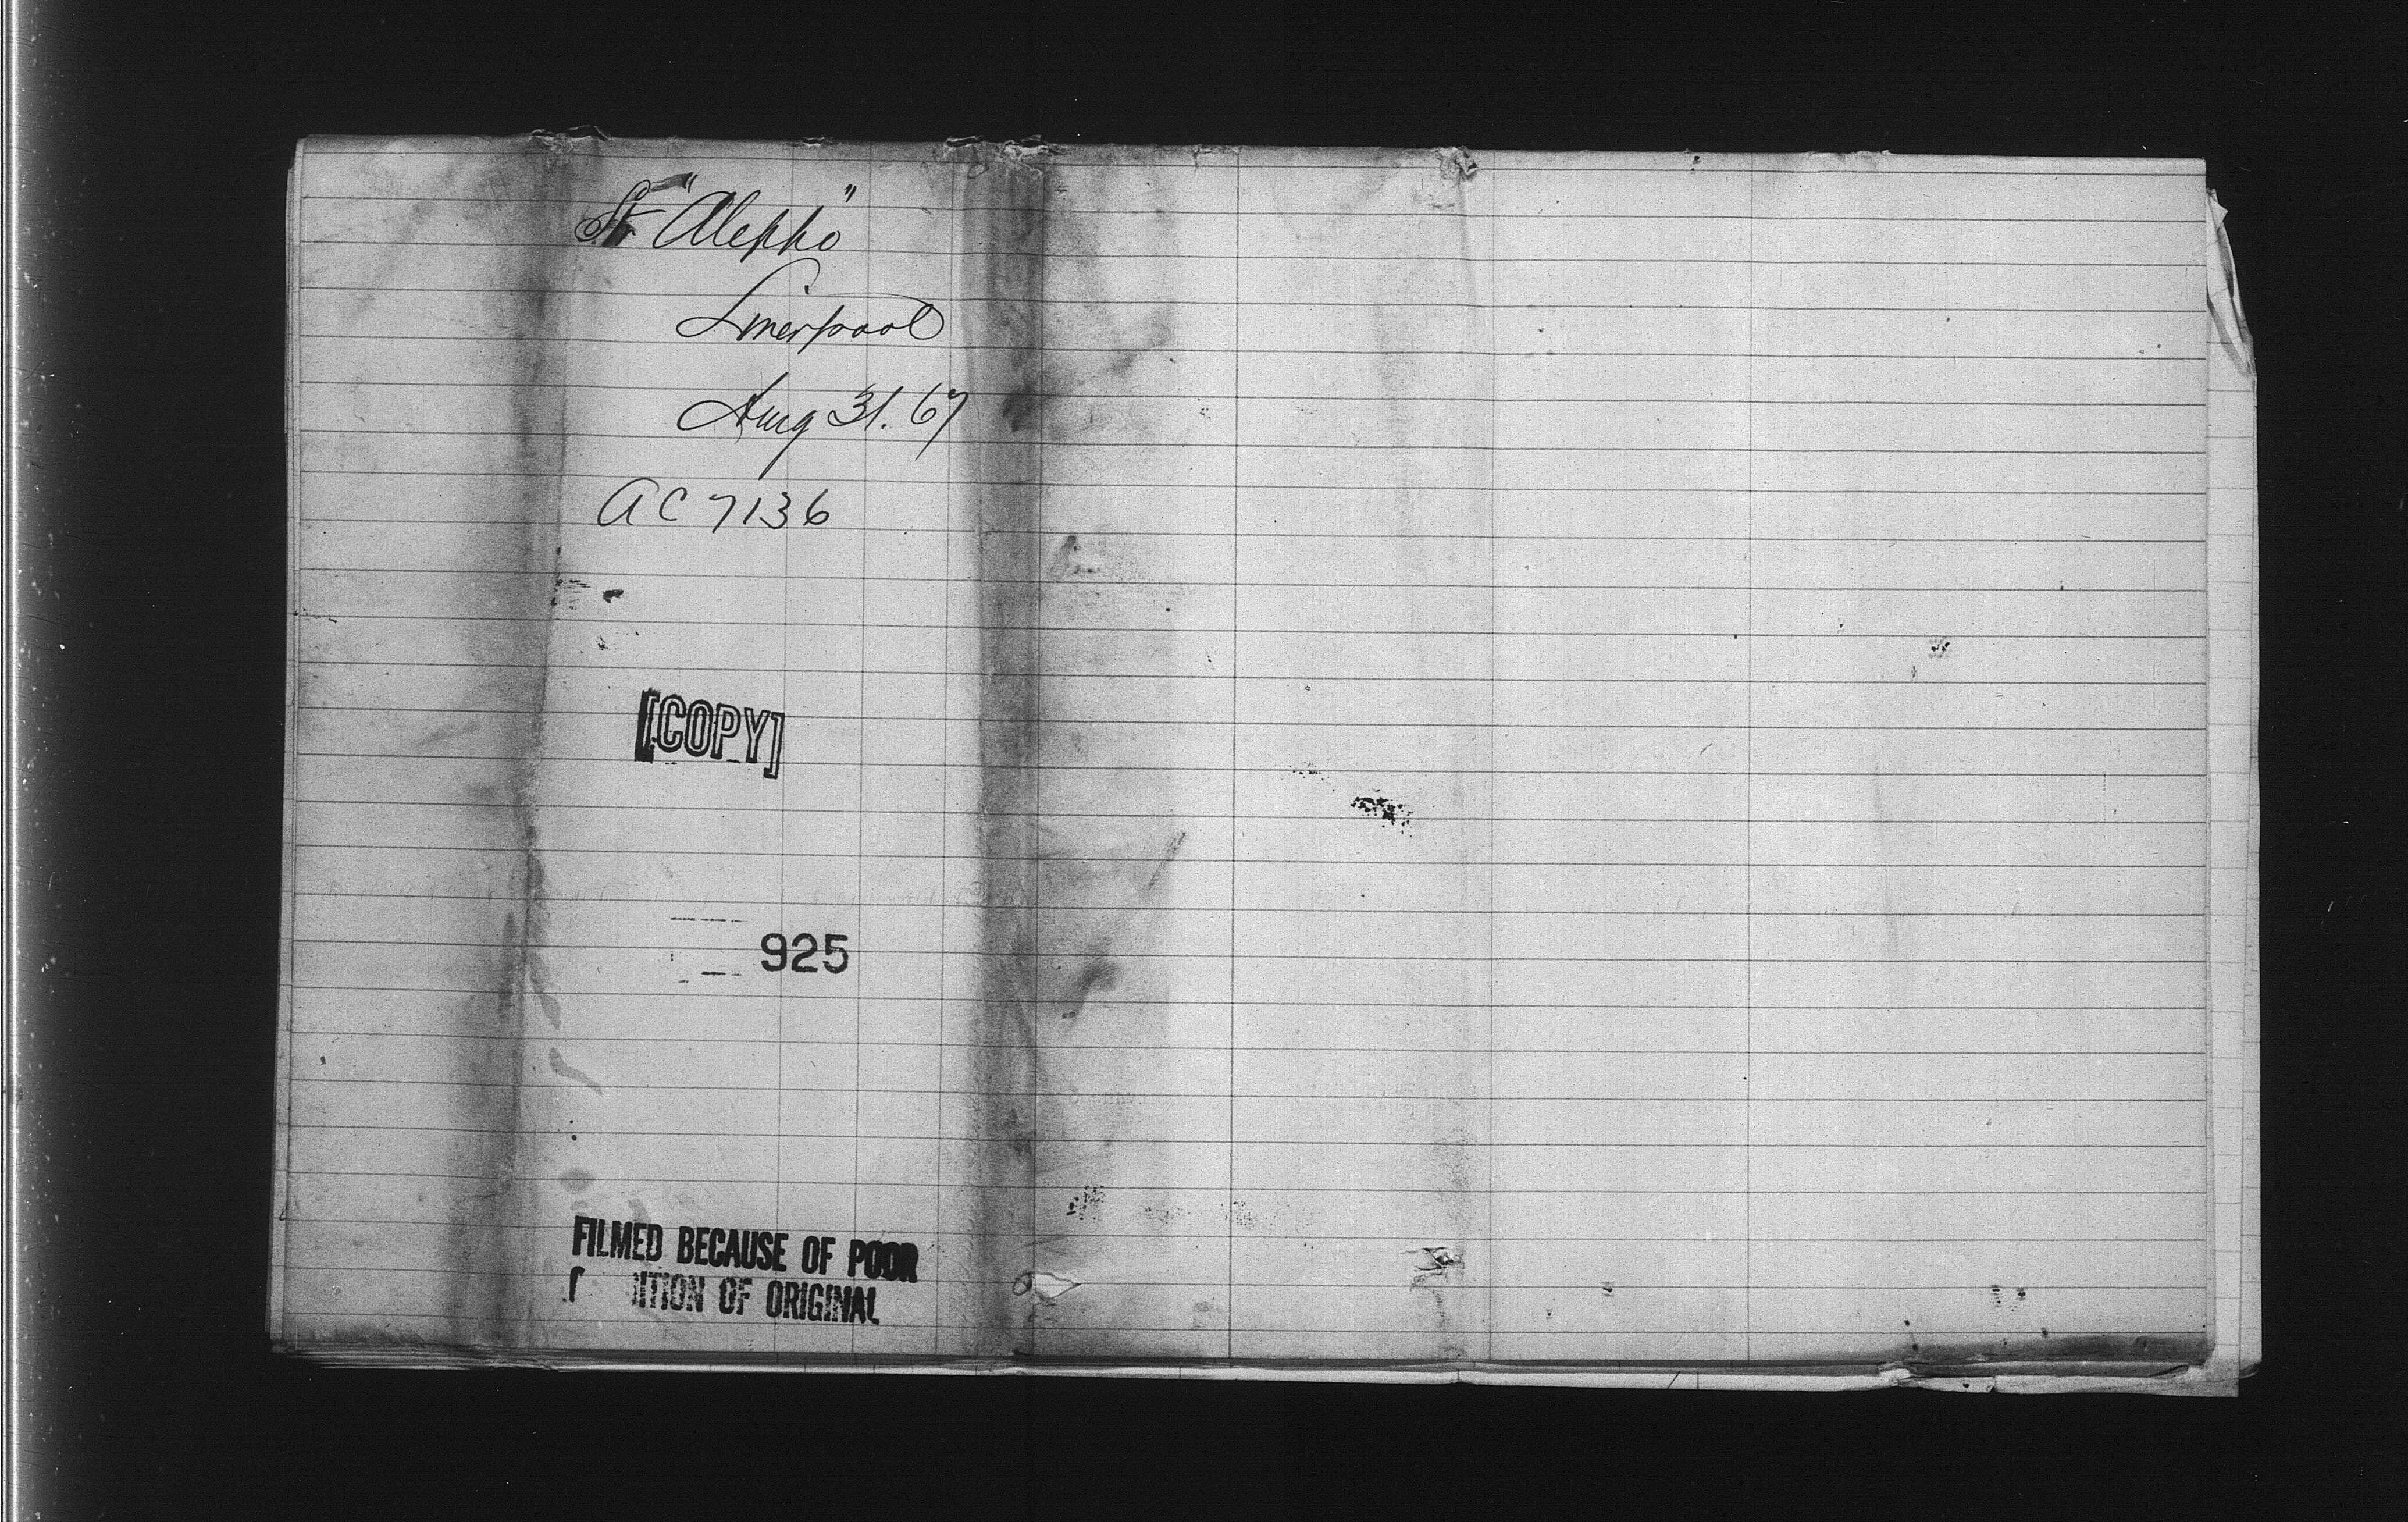 St "Aleppo"
Liverpool
Aug 31. 67
AC 7136
[COPY]
925
FILMED BECAUSE OF POOR
ITION OF ORIGINAL